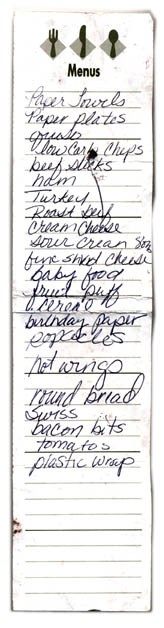 Menus
Paper Towels
Paper plates
queso
Low Carb Chips
beef sticks
ham
Turkey
Roast Beef
Cream Cheese
Sour Cream 8oz
fine shred cheese
baby food
fruit puff
birthday paper
popcicles
hot wings
round bread
Swiss
bacon bits
tomatos
plastic wrap